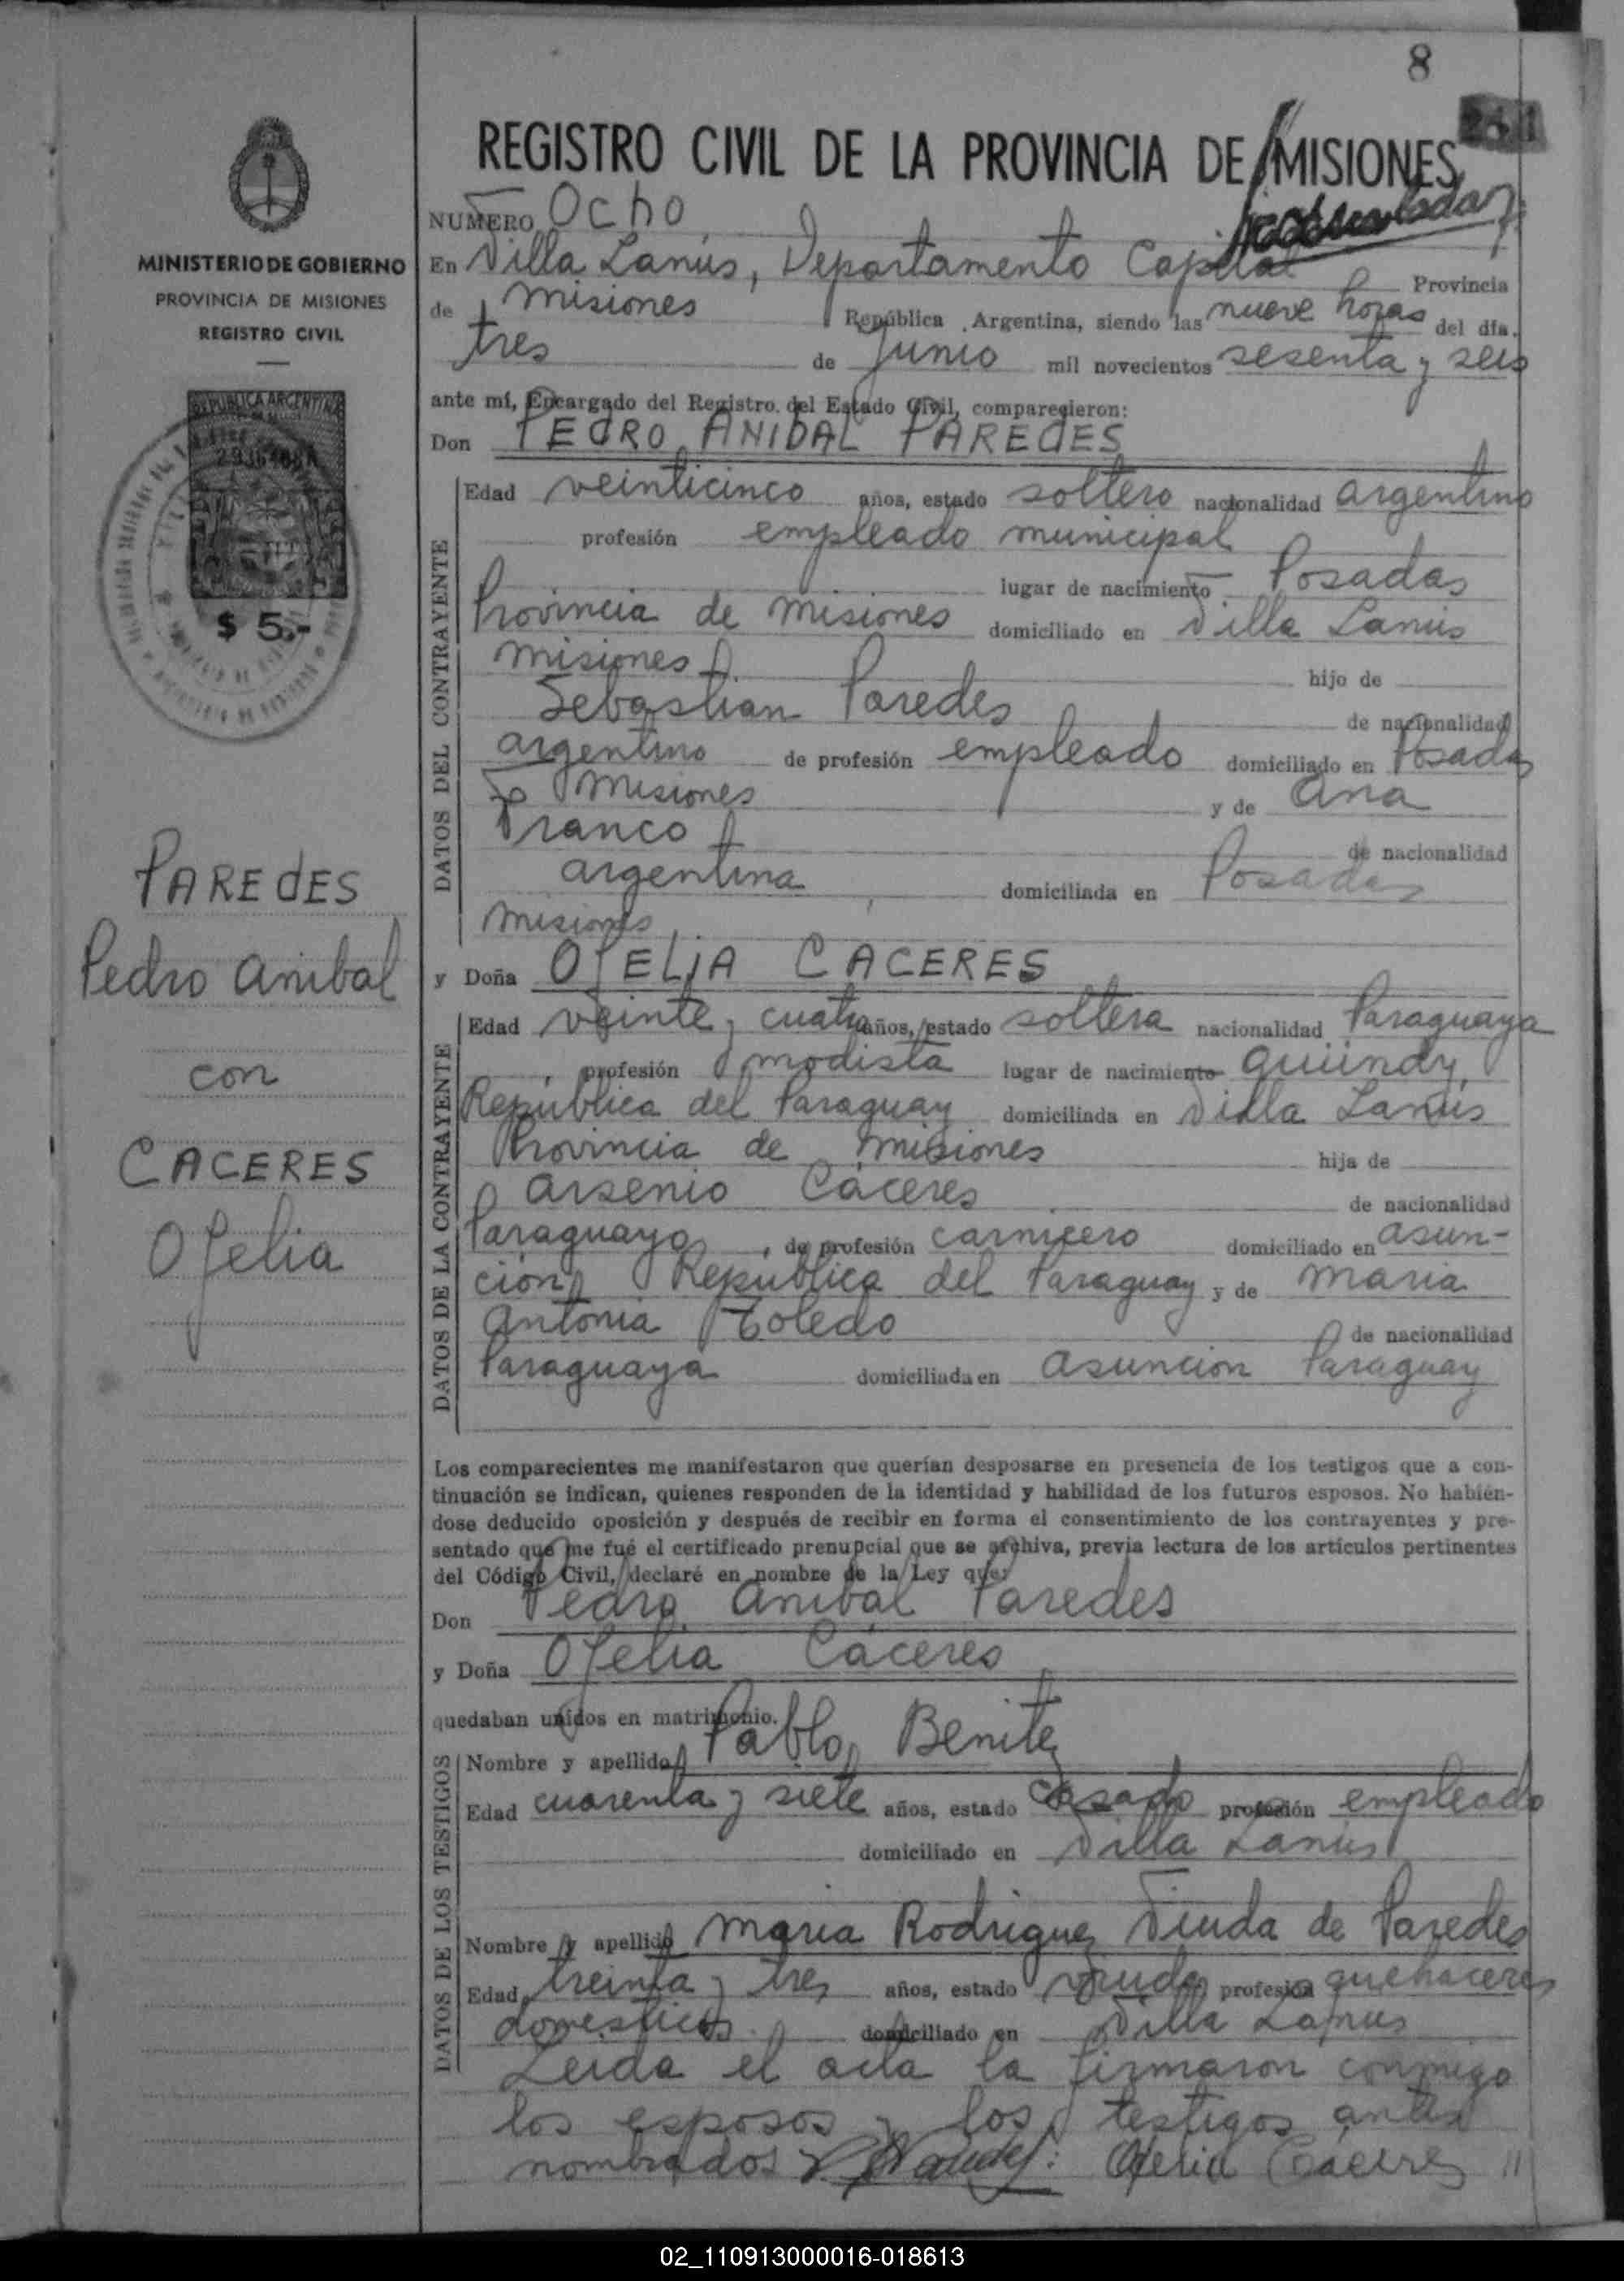 8
REGISTRO CIVIL DE LA PROVINCIA DE MISIONES
NUMERO Ocho
MINISTERIO DE GOBIERNO
PROVINCIA DE MISIONES
REGISTRO CIVIL
$ 5.-
PAREdES
Pedro Anibal
con
CACERES
Ofelia
En Villa Lanús, Departamento Capital Provincia
de Misiones República Argentina, siendo las nueve horas del día
tres de Junio mil novecientos sesenta y seis
ante mí, Encargado del Registro del Estado Civil, comparecieron:
Don PEdRO ANIBAL PAREdES
DATOS DEL CONTRAYENTE
Edad veinticinco años, estado soltero nacionalidad argentino
profesión empleado municipal
lugar de nacimiento Posadas
Provincia de Misiones domiciliado en Villa Lanús
Misiones hijo de
Sebastian Paredes de nacionalidad
argentino de profesión empleado domiciliado en Posadas
Misiones y de Ana
Franco de nacionalidad
argentina domiciliada en Posadas
Misiones
y Doña OfELiA CACERES
DATOS DE LA CONTRAYENTE
Edad veinte y cuatro años, estado soltera nacionalidad Paraguaya
profesión modista lugar de nacimiento Quiindy,
República del Paraguay domiciliada en Villa Lanús
Provincia de Misiones hija de
Arsenio Cáceres de nacionalidad
Paraguayo, de profesión carnicero domiciliado en Asun-
ción, República del Paraguay y de Maria
Antonia Toledo de nacionalidad
Paraguaya domiciliada en Asunción Paraguay
Los comparecientes me manifestaron que querían desposarse en presencia de los testigos que a con-
tinuación se indican, quienes responden de la identidad y habilidad de los futuros esposos. No habién-
dose deducido oposición y después de recibir en forma el consentimiento de los contrayentes y pre-
sentado que me fué el certificado prenupcial que se archiva, previa lectura de los artículos pertinentes
del Código Civil, declaré en nombre de la Ley que:
Don Pedro Anibal Paredes
y Doña Ofelia Cáceres
quedaban unidos en matrimonio.
DATOS DE LOS TESTIGOS
Nombre y apellido Pablo Benitez
Edad cuarenta y siete años, estado casado profesión empleado
domiciliado en Villa Lanús
Nombre y apellido Maria Rodriguez Viuda de Paredes
Edad treinta y tres años, estado viuda profesión quehaceres
domesticos domiciliado en Villa Lanus
Leida el acta la firmaron conmigo
los esposos y los testigos antes
nombrados Ofelia Cáceres //
02_110913000016-018613